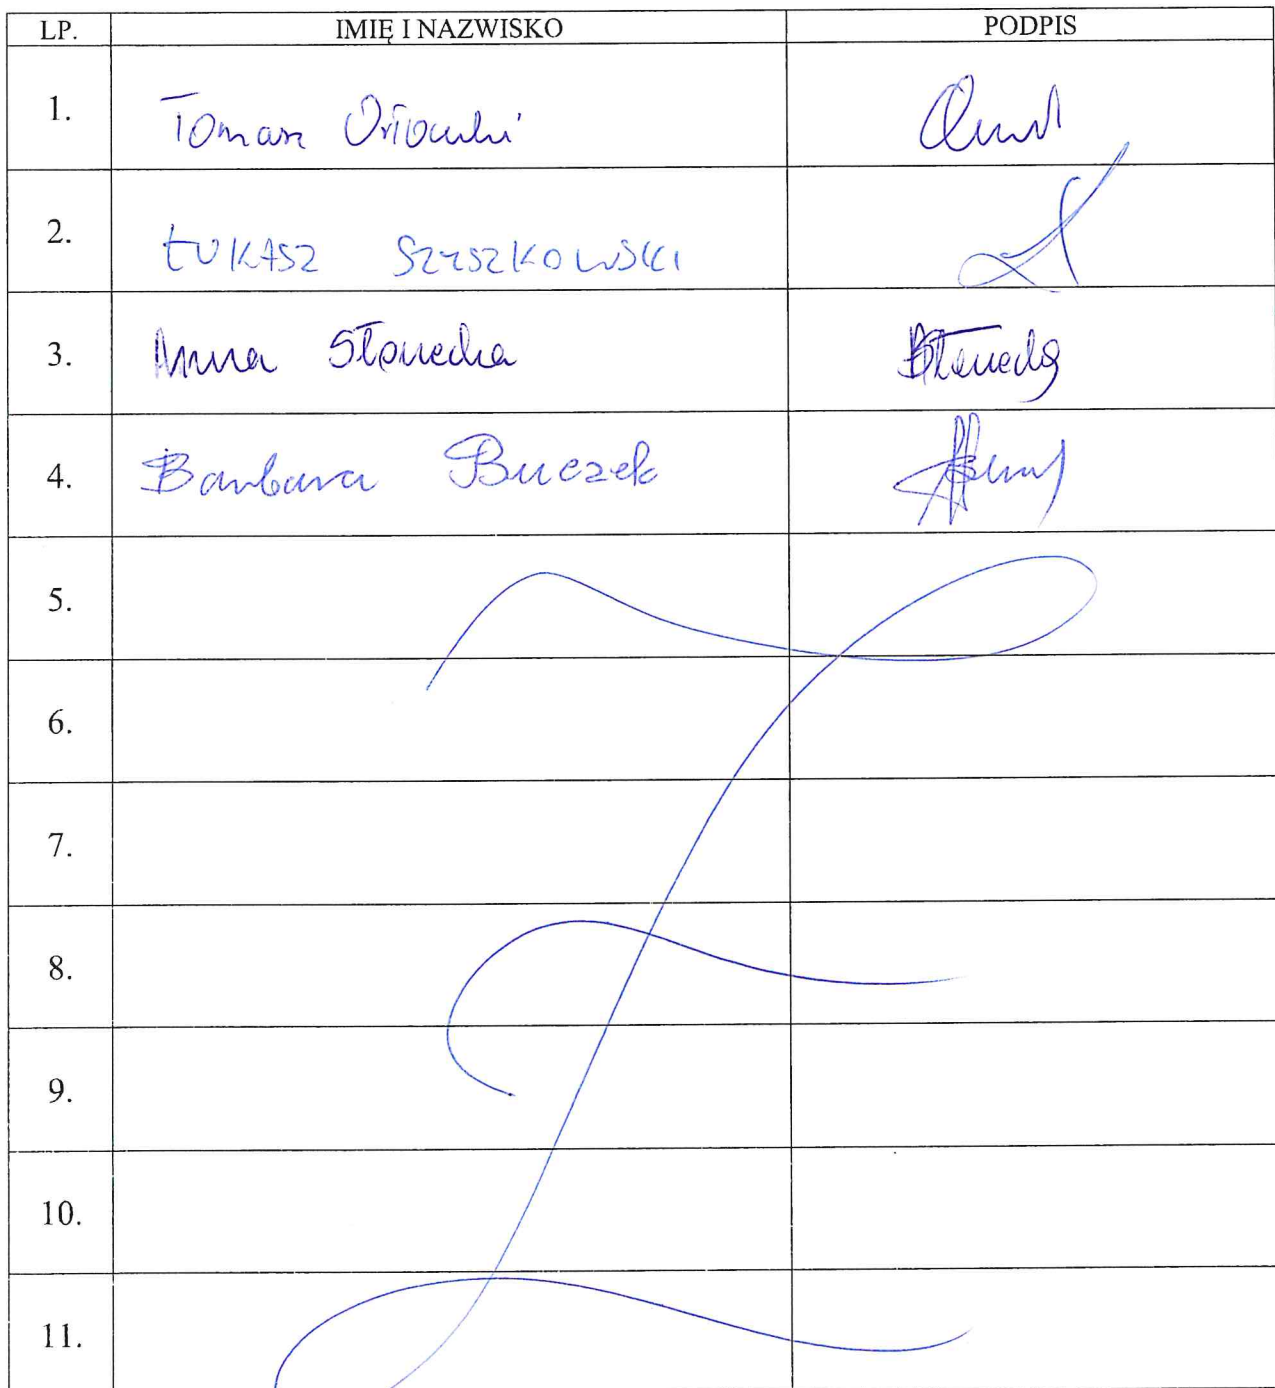 LP. IMIĘ I NAZWISKO PODPIS
1. Tomasz Orłowski
2. ŁUKASZ SZYSZKOWSKI
3. Anna Słonecka Słonecka
4. Barbara Buczek
5.
6.
7.
8.
9.
10.
11.